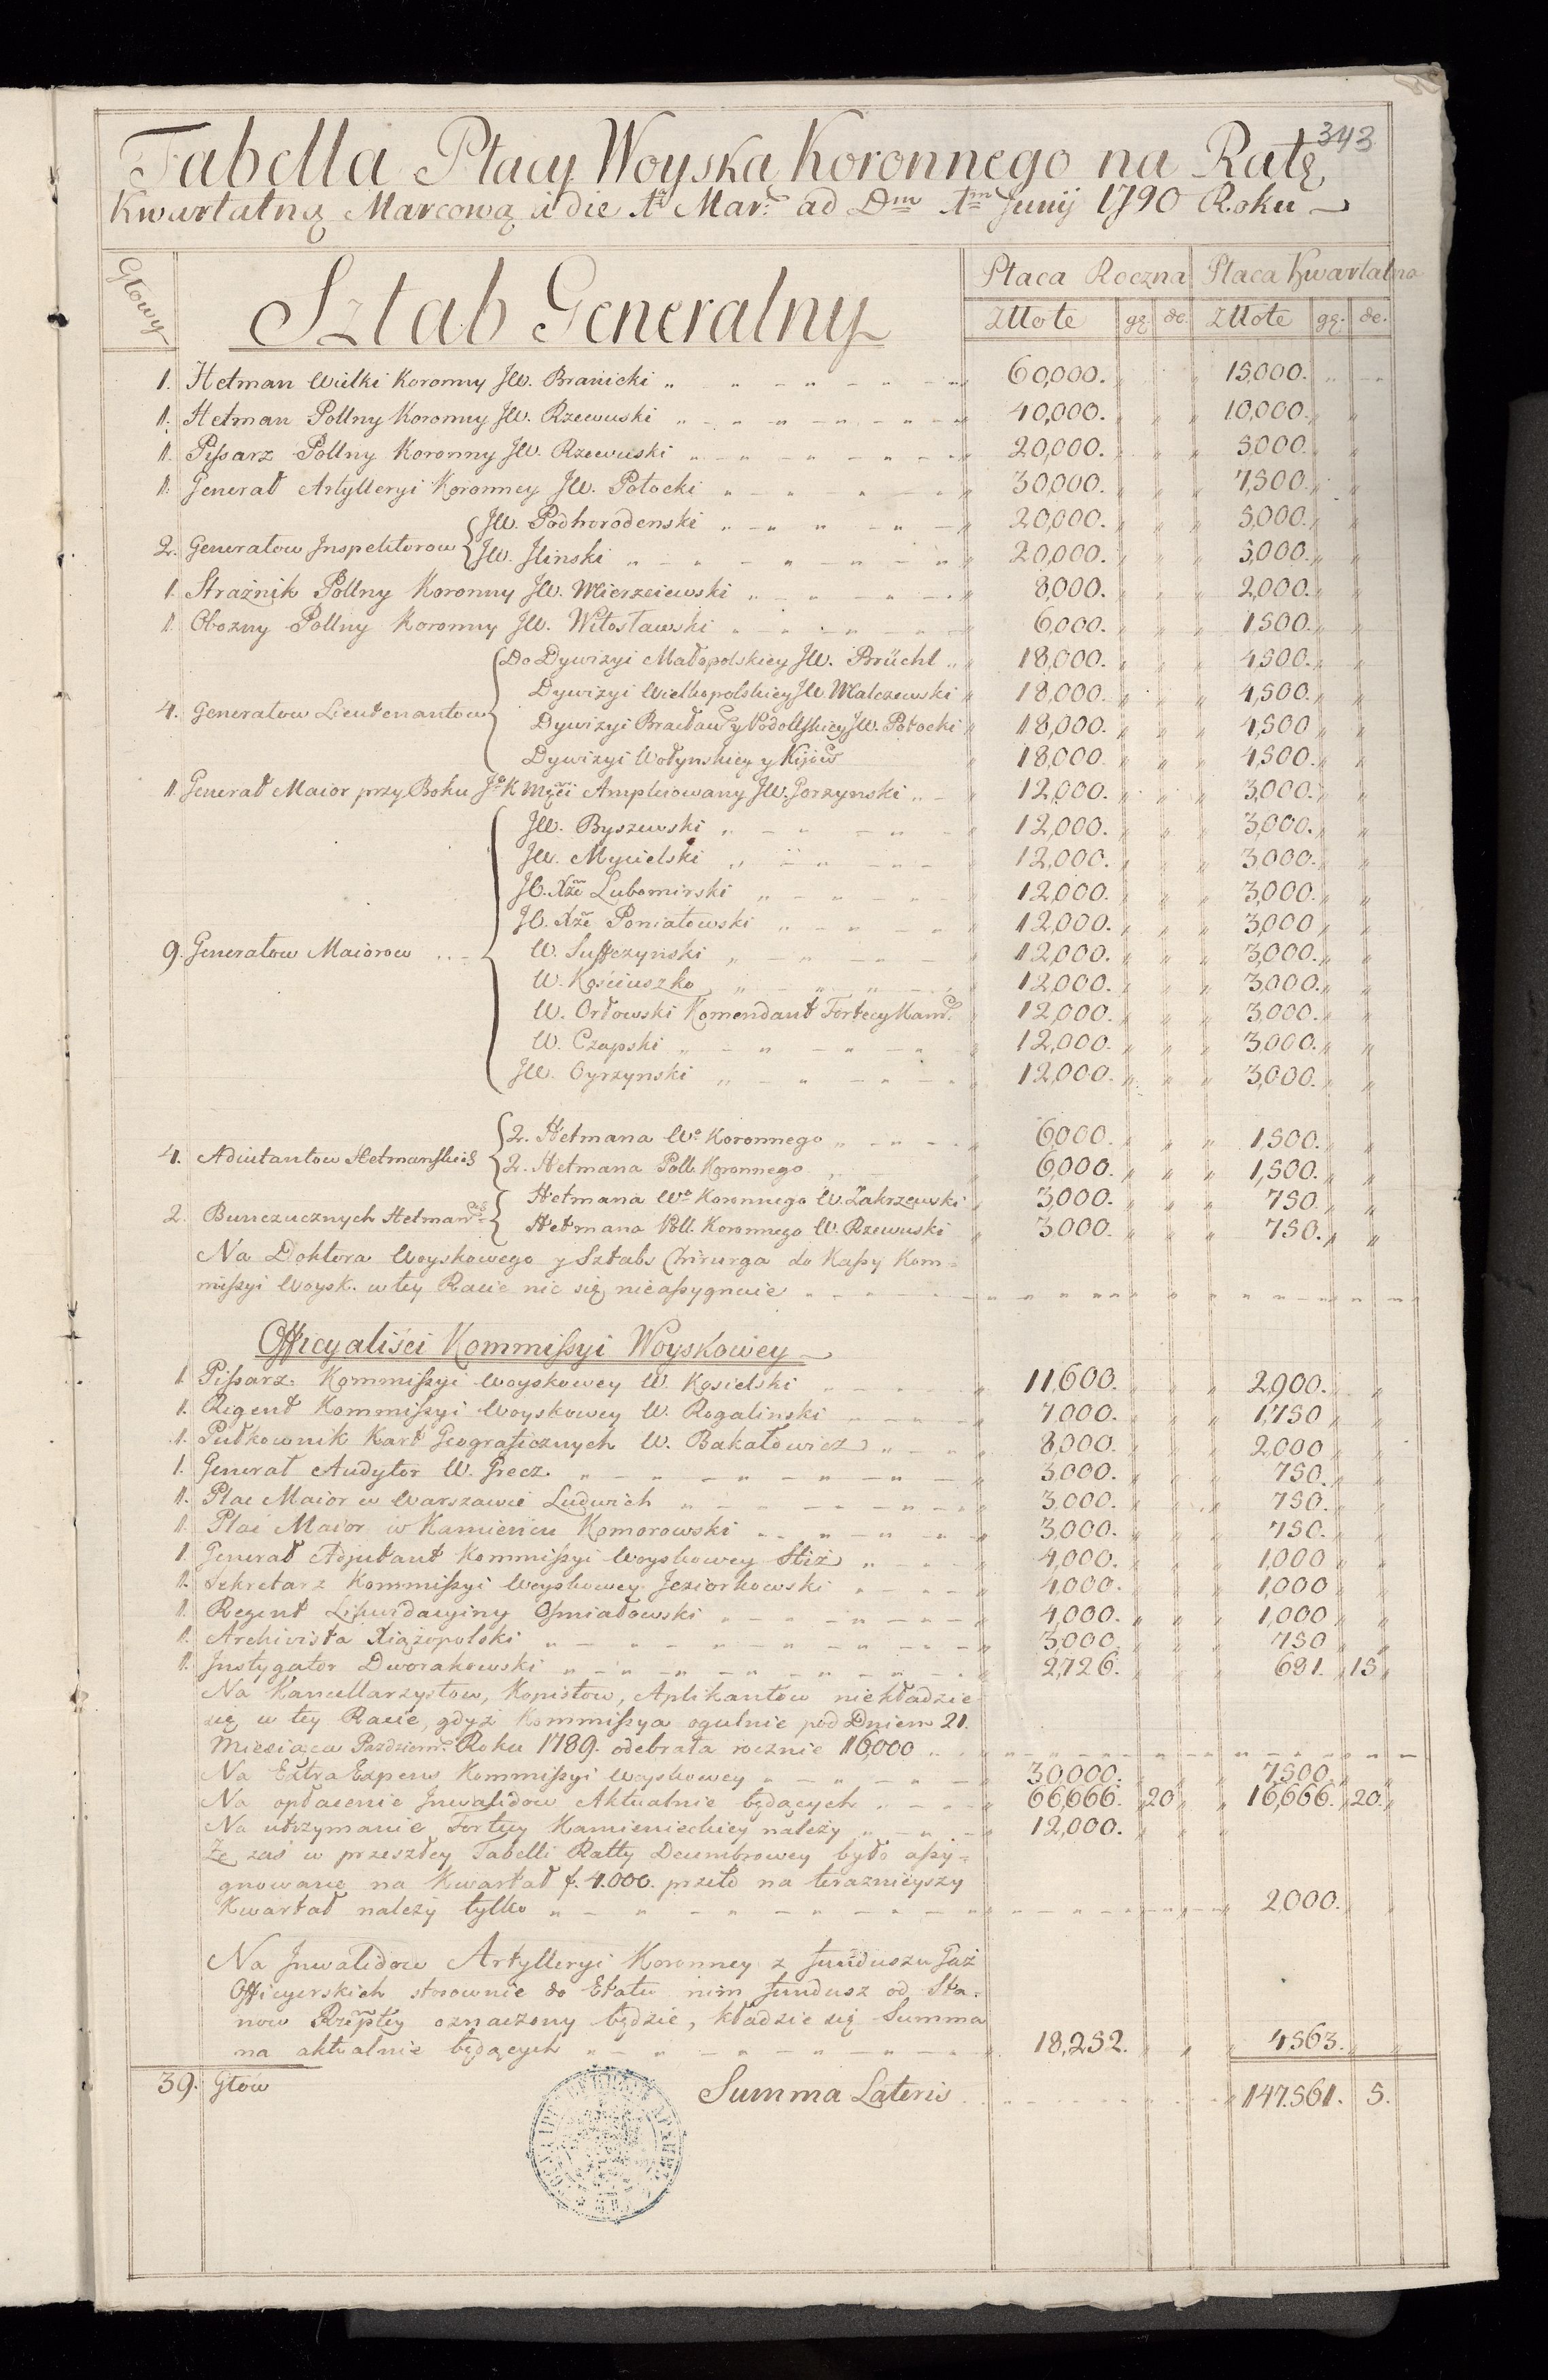 343
Tabella Płacy Woyska Koronnego na Ratę
Kwartalną Marcową a die 1ª Mar: ad Dm 1m Junij 1790 Roku
Głowy
Sztab Generalny
Płaca Roczna Płaca Kwartalna
Złłote gę. de. Złłote gę. de.
1. Hetman Wielki Koronny JW. Branicki 60,000. 15,000.
1. Hetman Pollny Koronny JW. Rzewuski 40,000. 10,000.
1. Pißarz Pollny Koronny JW. Rzewuski 20,000. 5,000.
1. Generał Artylleryi Koronney JW. Potocki 30,000. 7,500.
2. Generałow Inspektorow JW. Podhorodenski 20,000. 5,000.
JW. Ilinski 20,000. 5,000.
1. Strażnik Pollny Koronny JW. Mierzeiewski 8,000. 2,000.
1. Obozny Pollny Koronny JW. Witosławski 6,000. 1,500.
Do Dywizyi Małopolskiey JW. Brüchl 18,000. 4,500.
Dywizyi Wielkopolskiey JW. Malczewski 18,000. 4,500.
4. Generałow Lieutenantow
Dywizyi Bracław: y Podollskiey JW. Potocki 18,000. 4,500
Dywizyi Wołynskiey y Kijow 18,000. 4,500.
1. Generał Maior przy Boku Jo K Mści Ampleiowany JW. Gorzynski 12,000. 3,000.
JW. Byszewski 12,000. 3,000.
JW. Mycielski 12,000. 3,000.
JO. Xże Lubomirski 12,000. 3,000.
JO. Xże Poniatowski 12,000. 3,000
9. Generałow Maiorow W. Suffczynski 12,000. 3,000.
W. Kościuszko 12,000. 3,000.
W. Orłowski Komendant Fortecy Kam. 12,000. 3,000.
W. Czapski 12,000. 3,000.
JW. Oyrzynski 12,000. 3,000.
2. Hetmana Wo Koronnego 6,000. 1,500.
4. Adiutantow Hetmanskich
2. Hetmana Poll. Koronnego 6,000. 1,500.
Hetmana Wo Koronnego W. Zakrzewski 3,000. 750.
2. Bunczucznych Hetman
Hetmana Poll. Koronnego W. Rzewuski 3,000. 750.
Na Doktora Woyskowego y Sztabs Chirurga do Kaßy Kom=
mißyi Woysk. w tey Racie nic się nieaßygnuie
Officyaliści Kommißyi Woyskowey
1. Pißarz Kommißyi Woyskowey W. Kosielski 11,600. 2,900.
1. Regent Kommißyi Woyskowey W. Rogalinski 7,000. 1,750
1. Pułkownik Kart Geograficznych W. Bakałowicz 8,000. 2,000
1. Generał Audytor W. Grecz 3,000. 750.
1. Plac Maior w Warszawie Ludwich 3,000. 750.
1. Plac Maior w Kamieńcu Komorowski 3,000. 750.
1. Generał Adjutant Kommißyi Woyskowey Stiż 4,000. 1,000
1. Sekretarz Kommißyi Woyskowey Jeziorkowski 4,000. 1,000
1. Regent Likwidacyiny Osmiałowski 4,000. 1,000
1. Archivista Xiążopolski 3,000. 750
1. Instygator Dworakowski 2,726. 681. 15
Na Kancellarzystow, Kopistow, Aplikantow niekładzie
się w tey Racie, gdyż Kommißya ogulnie pod Dniem 21.
Miesiąca Paździer: Roku 1789. odebrała rocznie 116,000
Na Extra Expens Kommißyi Woyskowey 30,000. 7,500.
Na opłacenie Inwalidow Aktualnie będących 66,666. 20 16,666. 20.
Na utrzymanie Fortecy Kamienieckiey należy 12,000.
Że zaś w przeszłey Tabelli Ratty Decembrowey było aßy=
gnowane na Kwartał f. 4.000. przeto na teraznieyszy
Kwartał należy tylko 2,000.
Na Inwalidow Artylleryi Koronney z funduszu Gaż
Officyerskich stosownie do Etatu nim fundusz od Sta=
now Rzeptey oznaczony będzie, kładzie się Summa
na aktualnie będących 18,252. 4563.
39. Głow Summa Lateris 147.561. 5.